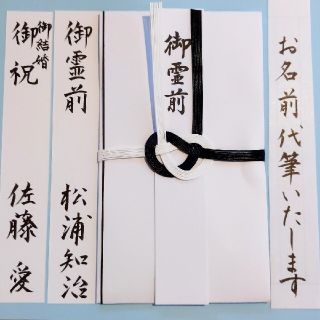 御結婚
御祝
佐藤 愛
御霊前
松浦知治
御霊前
お名前代筆いたします